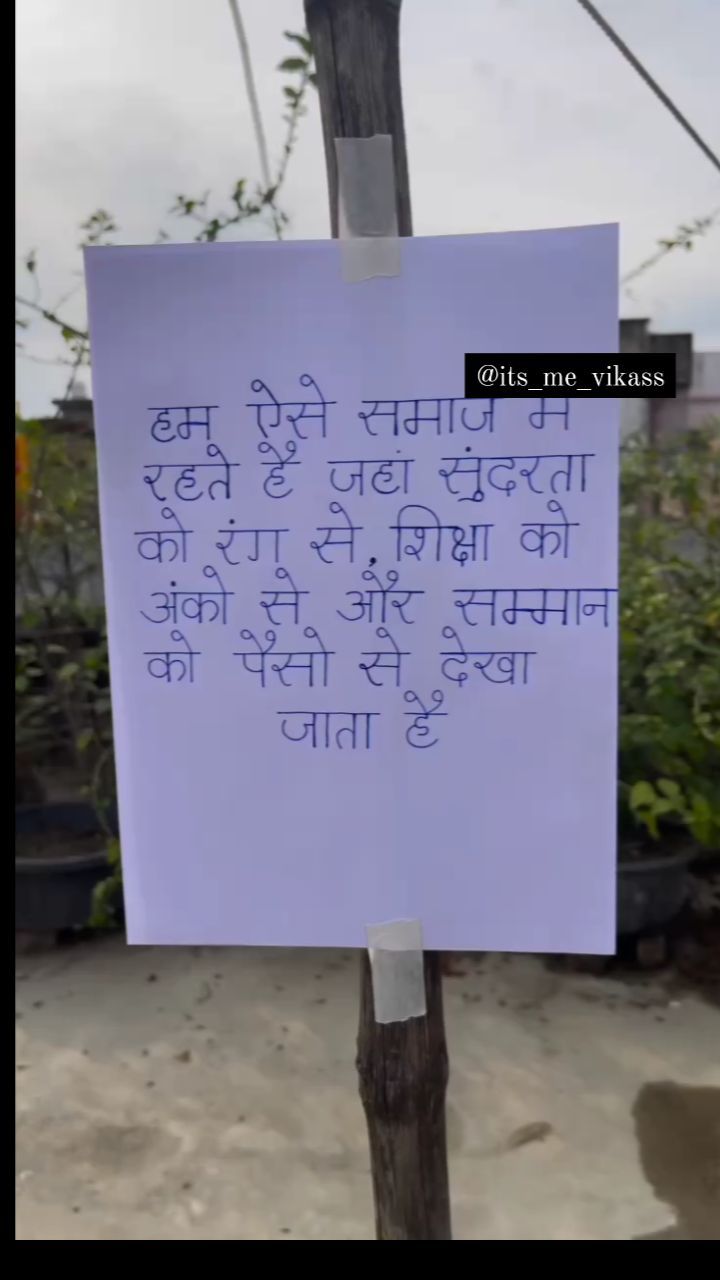 @its_me_vikass
हम ऐसे समाज में
रहते है जहां सुंदरता
को रंग से, शिक्षा को
अंको से और सम्मान
को पैसो से देखा
जाता है